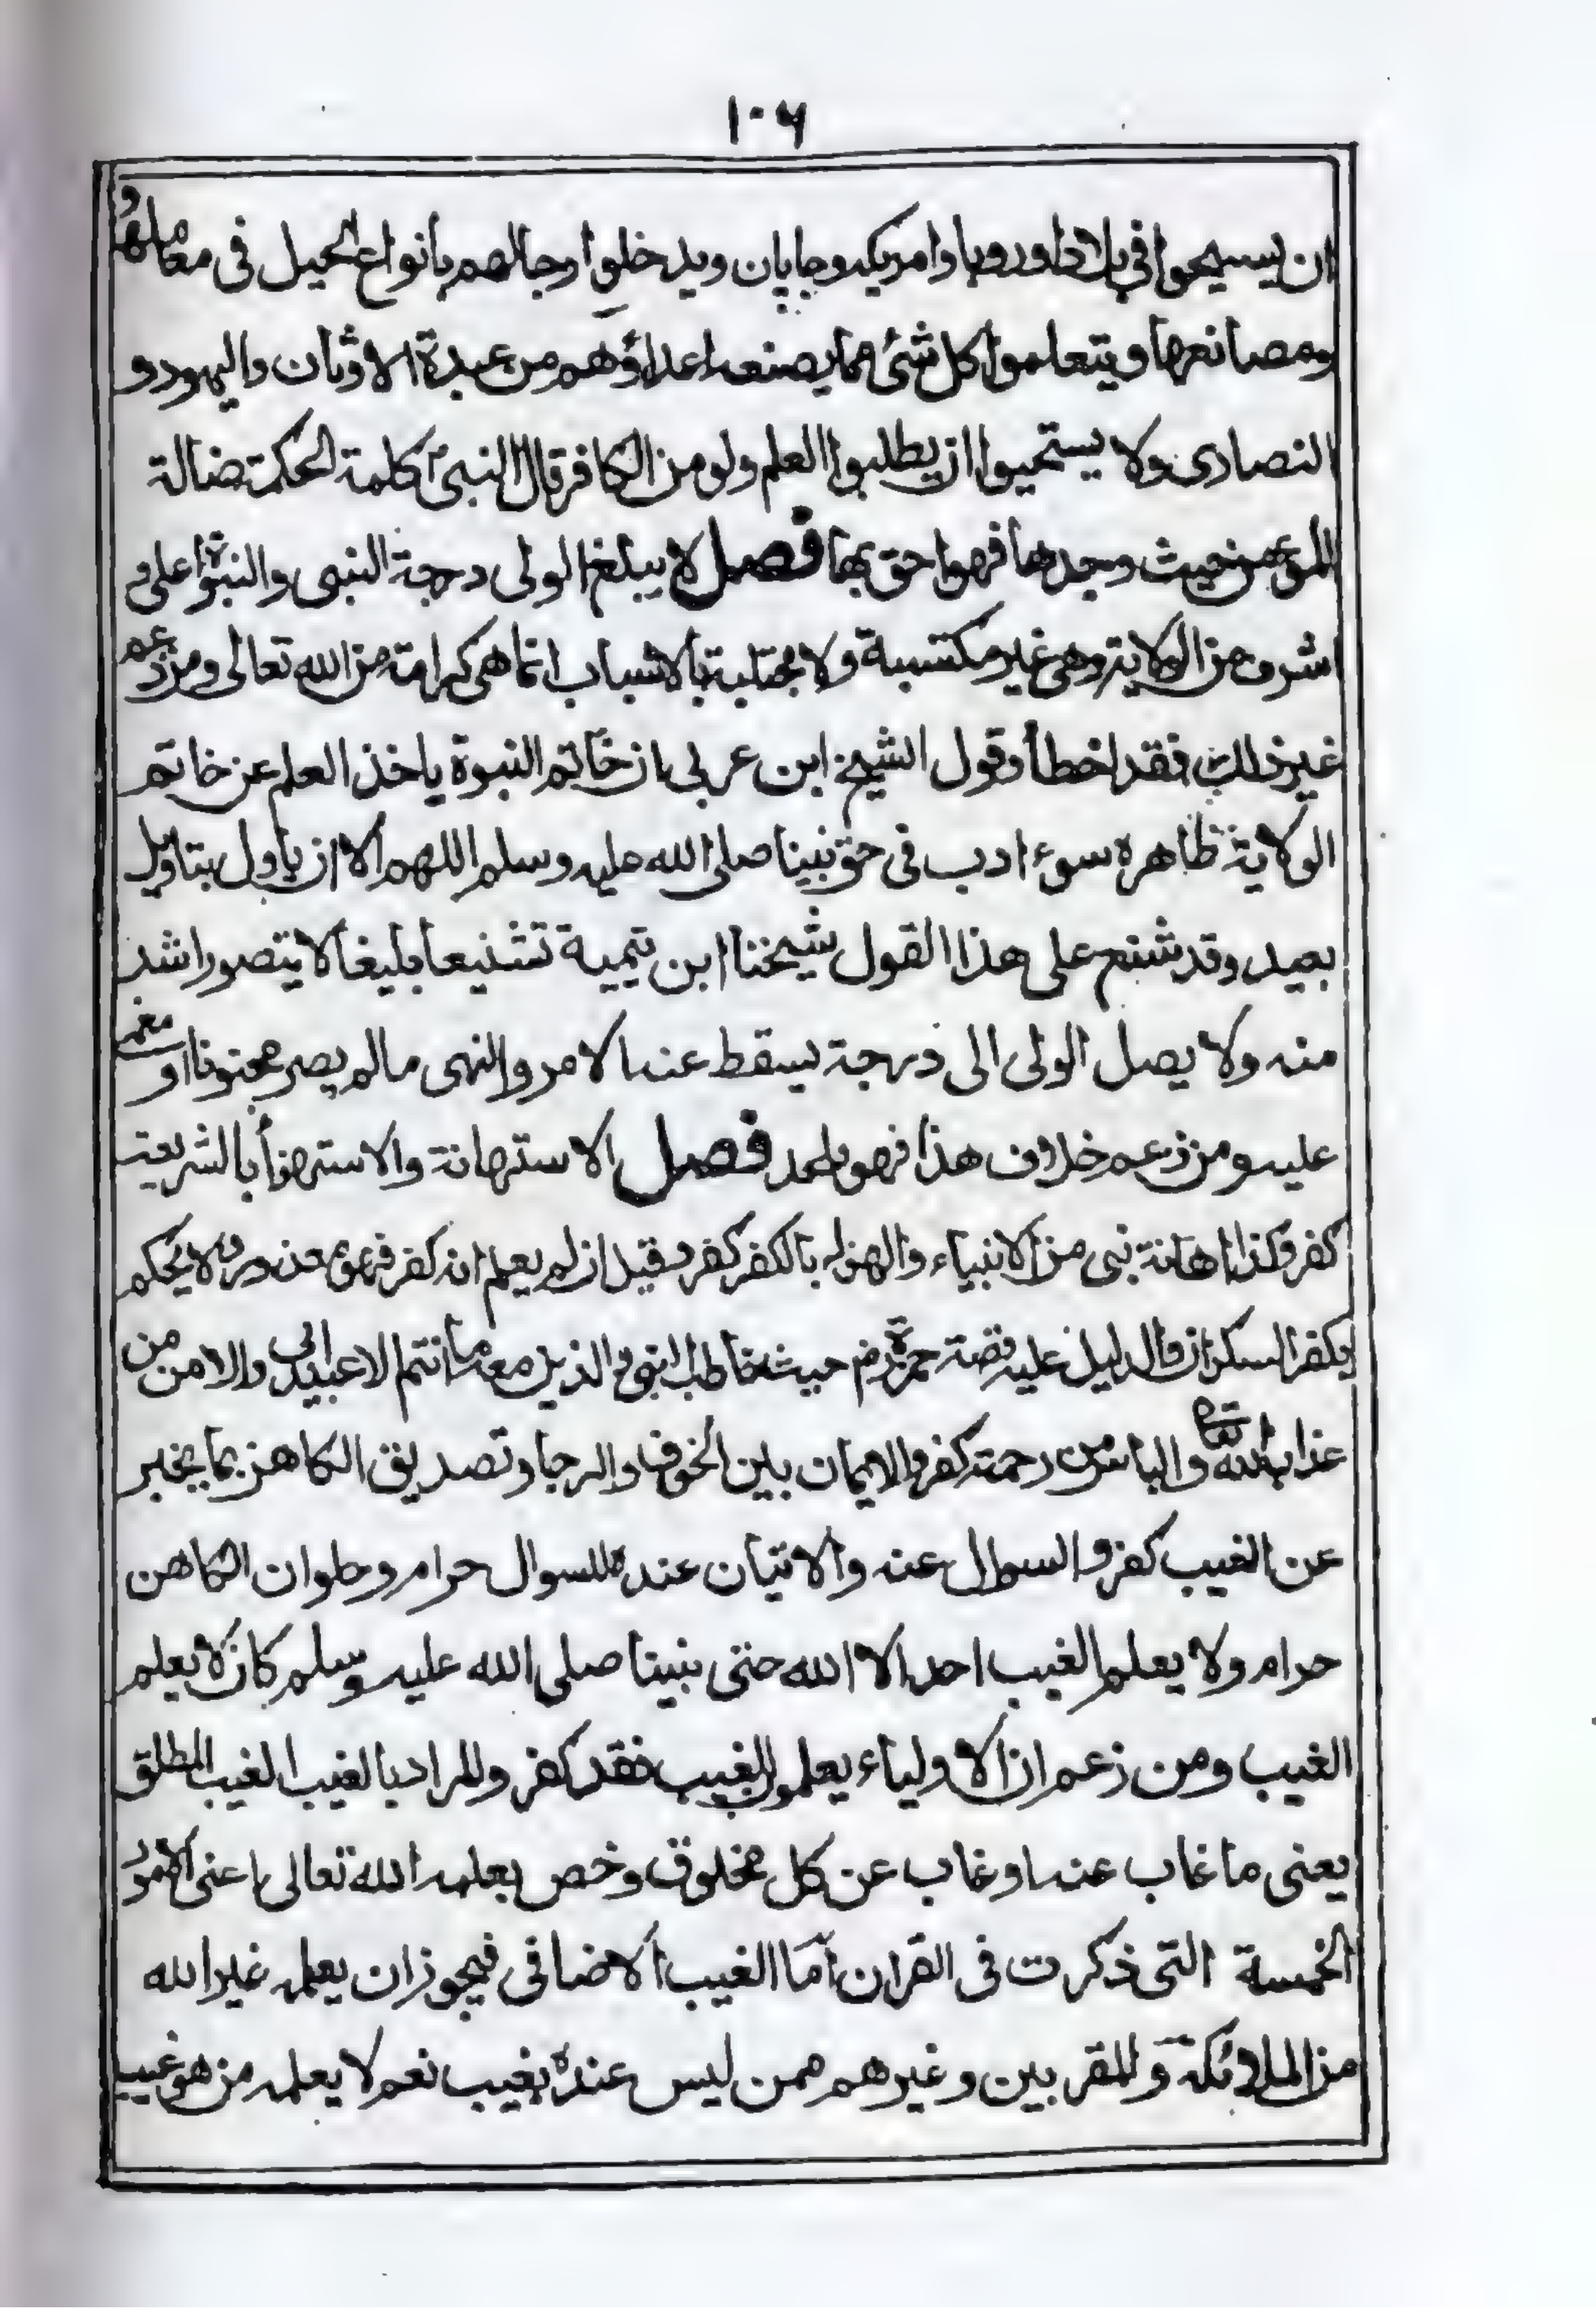 ١٠٦
ان يسيحوا في بلاد اوروبا وامريكه وجاپان ويدخلوا رجالهم بانواع الحيل في معاملها
ومصانعها ويتعلموا كل شئ مما يصنعه اعداؤهم من عبدة الاوثان واليهود و
النصارى ولا يستحيوا ان يطلبوا العلم ولو من الكافر قال النبي كلمة الحكمة ضالة
المؤمن حيث وجدها فهو احق بها فصل لا يبلغ الولى درجة النبى والنبوة اعلى و
اشرف من الولاية وهى غير مكتسبة ولا مجتلبة بالاسباب انما هى كرامة من الله تعالى ومن زعم
غير ذلك فقد اخطأ وقول الشيخ ابن عربى بان خاتم النبوة ياخذ العلم عن خاتم
الولاية ظاهره سوء ادب فى حق نبينا صلى الله عليه وسلم اللهم الا ان يأول بتاويل
بعيد وقد شنع على هذا القول شيخنا ابن تيمية تشنيعا بليغا لا يتصور اشد
منه ولا يصل الولى الى درجة يسقط عنه الامر والنهى مالم يصر مجنونا او مغمى
عليه ومن زعم خلاف هذا فهو ملحد فصل الاستهانة والاستهزأ بالشريعة
كفر وكذا اهانة نبى من الانبياء والهزل بالكفر كفر وقيل ان لم يعلم انه كفر فهو معذور ولا يحكم
بكفر السكران والدليل عليه قصة حمزة رض حيث خاطب النبى والذين معه ما انتم الا عبيد ابى والامن من
عذاب الله تعالى والياس من رحمته كفر والايمان بين الخوف والرجا وتصديق الكاهن بما يخبر
عن الغيب كفر والسوال عنه والاتيان عنده للسوال حرام وحلوان الكاهن
حرام ولا يعلم الغيب احد الا الله حتى نبينا صلى الله عليه وسلم كان لا يعلم
الغيب ومن زعم ان الاولياء يعلمون الغيب فقد كفر والمراد بالغيب الغيب المطلق
يعنى ما غاب عنه او غاب عن كل مخلوق وخص بعلمه الله تعالى اعنى الامور
الخمسة التى ذكرت فى القران اما الغيب الاضافى فيجوز ان يعلمه غير الله
من الملائكة والمقربين وغيرهم ممن ليس عنده بغيب نعم لا يعلمه من هو غيب